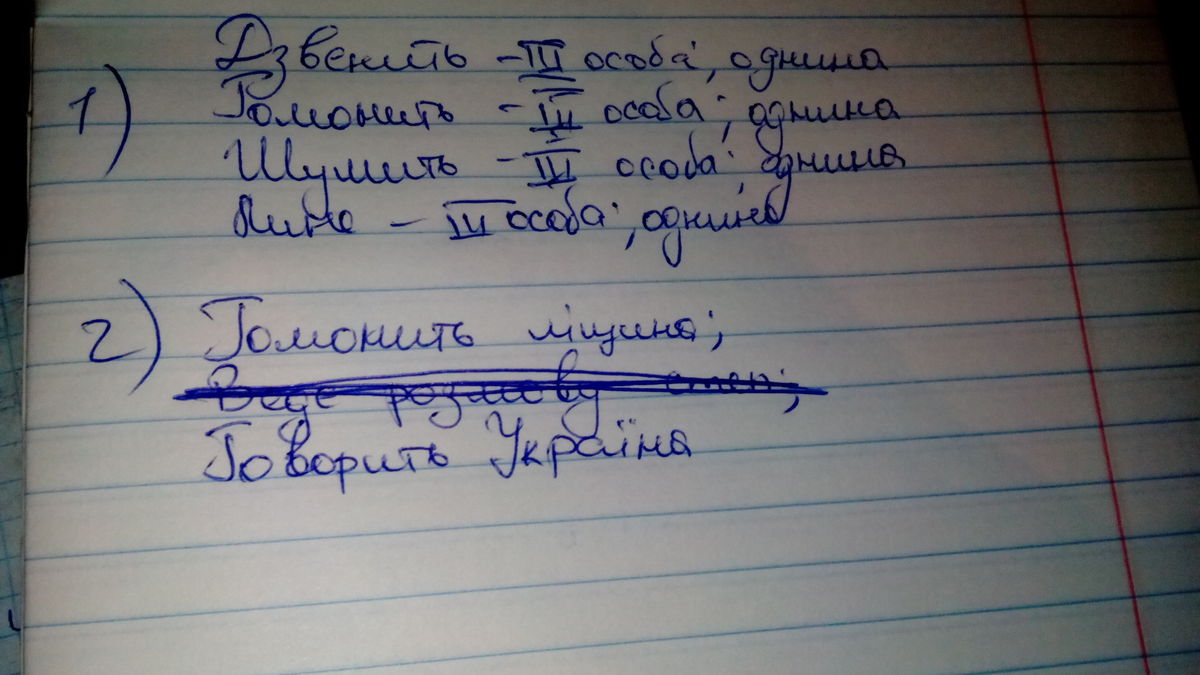 Дзвенить - III особа, однина
1) Гомонить - III особа; однина
Шумить - III особа; однина
Лине - III особа; однина
2) Гомонить ліщина;
Веде розмову степ;
Говорить Україна